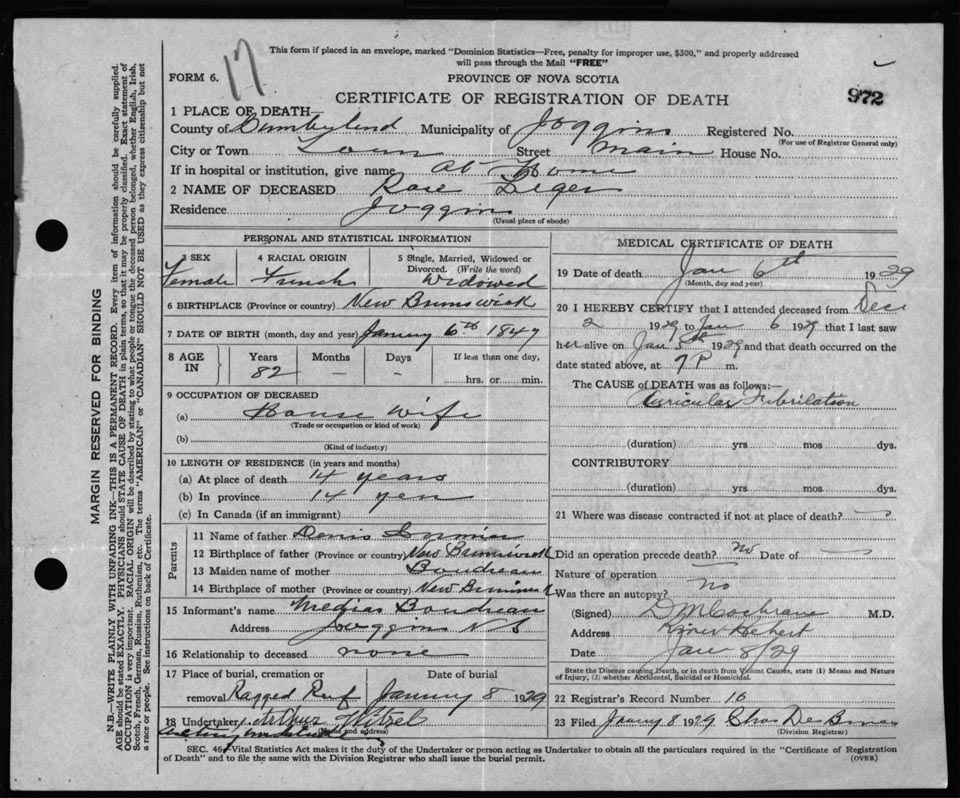 17
This form if placed in an envelope, marked "Dominion Statistics—Free, penalty for improper use, $300," and properly addressed
will pass through the Mail "FREE"
FORM 6.
PROVINCE OF NOVA SCOTIA
CERTIFICATE OF REGISTRATION OF DEATH
972
1 PLACE OF DEATH—
County of Cumberland Municipality of Joggins Registered No.
(For use of Registrar General only)
City or Town Town Street main House No.
If in hospital or institution, give name at Home
2 NAME OF DECEASED Rose Leger
Residence Joggins
(Usual place of abode)
PERSONAL AND STATISTICAL INFORMATION
3 SEX 4 RACIAL ORIGIN 5 Single, Married, Widowed or Divorced. (Write the word)
Female French Widowed
6 BIRTHPLACE (Province or country) New Brunswick
7 DATE OF BIRTH (month, day and year) January 6th 1847
8 AGE IN Years Months Days If less than one day,
82 — — hrs. or min.
9 OCCUPATION OF DECEASED
(a) House wife
(Trade or occupation or kind of work)
(b)
(Kind of industry)
10 LENGTH OF RESIDENCE (in years and months)
(a) At place of death 14 years
(b) In province 14
(c) In Canada (if an immigrant)
Parents
11 Name of father Denis
12 Birthplace of father (Province or country) New Brunswick
13 Maiden name of mother Boudreau
14 Birthplace of mother (Province or country) New
15 Informant's name Boudreau
Address Joggins N S
16 Relationship to deceased none
17 Place of burial, cremation or removal Ragged Reef
Date of burial January 8 1929
18 Undertaker Arthur Witzel
(Name and address)
MEDICAL CERTIFICATE OF DEATH
19 Date of death Jan 6th 1929
(Month, day and year)
20 I HEREBY CERTIFY that I attended deceased from Dec
2 1929 to Jan 6 1929 that I last saw
her alive on Jan 5th 1929 and that death occurred on the
date stated above, at 7 P m.
The CAUSE of DEATH was as follows:—
Auricular Fibrilation
(duration) yrs. mos dys.
CONTRIBUTORY
(duration) yrs. mos. dys.
21 Where was disease contracted if not at place of death?
Did an operation precede death? no Date of
Nature of operation
Was there an autopsy? no
(Signed) D M Cochrane M.D.
Address River Hebert
Date Jan 8/29
State the Disease causing Death, or in death from Violent Causes, state (1) Means and Nature
of Injury, (2) whether Accidental, Suicidal or Homicidal.
22 Registrar's Record Number 16
23 Filed January 8 1929 Chas
(Division Registrar)
SEC. 46, Vital Statistics Act makes it the duty of the Undertaker or person acting as Undertaker to obtain all the particulars required in the "Certificate of Registration
of Death" and to file the same with the Division Registrar who shall issue the burial permit.
(OVER)
MARGIN RESERVED FOR BINDING
N.B.—WRITE PLAINLY WITH UNFADING INK—THIS IS A PERMANENT RECORD. Every item of information should be carefully supplied.
AGE should be stated EXACTLY. PHYSICIANS should STATE CAUSE OF DEATH in plain terms, so that it may be properly classified. Exact statement of
OCCUPATION is very important. RACIAL ORIGIN will be described by stating to what people or tongue the deceased person belonged, whether English, Irish,
Scotch, French, German, Russian, Ruthenian, etc. The terms "AMERICAN" or "CANADIAN" SHOULD NOT BE USED as they express citizenship but not
a race or people. See instructions on back of Certificate.